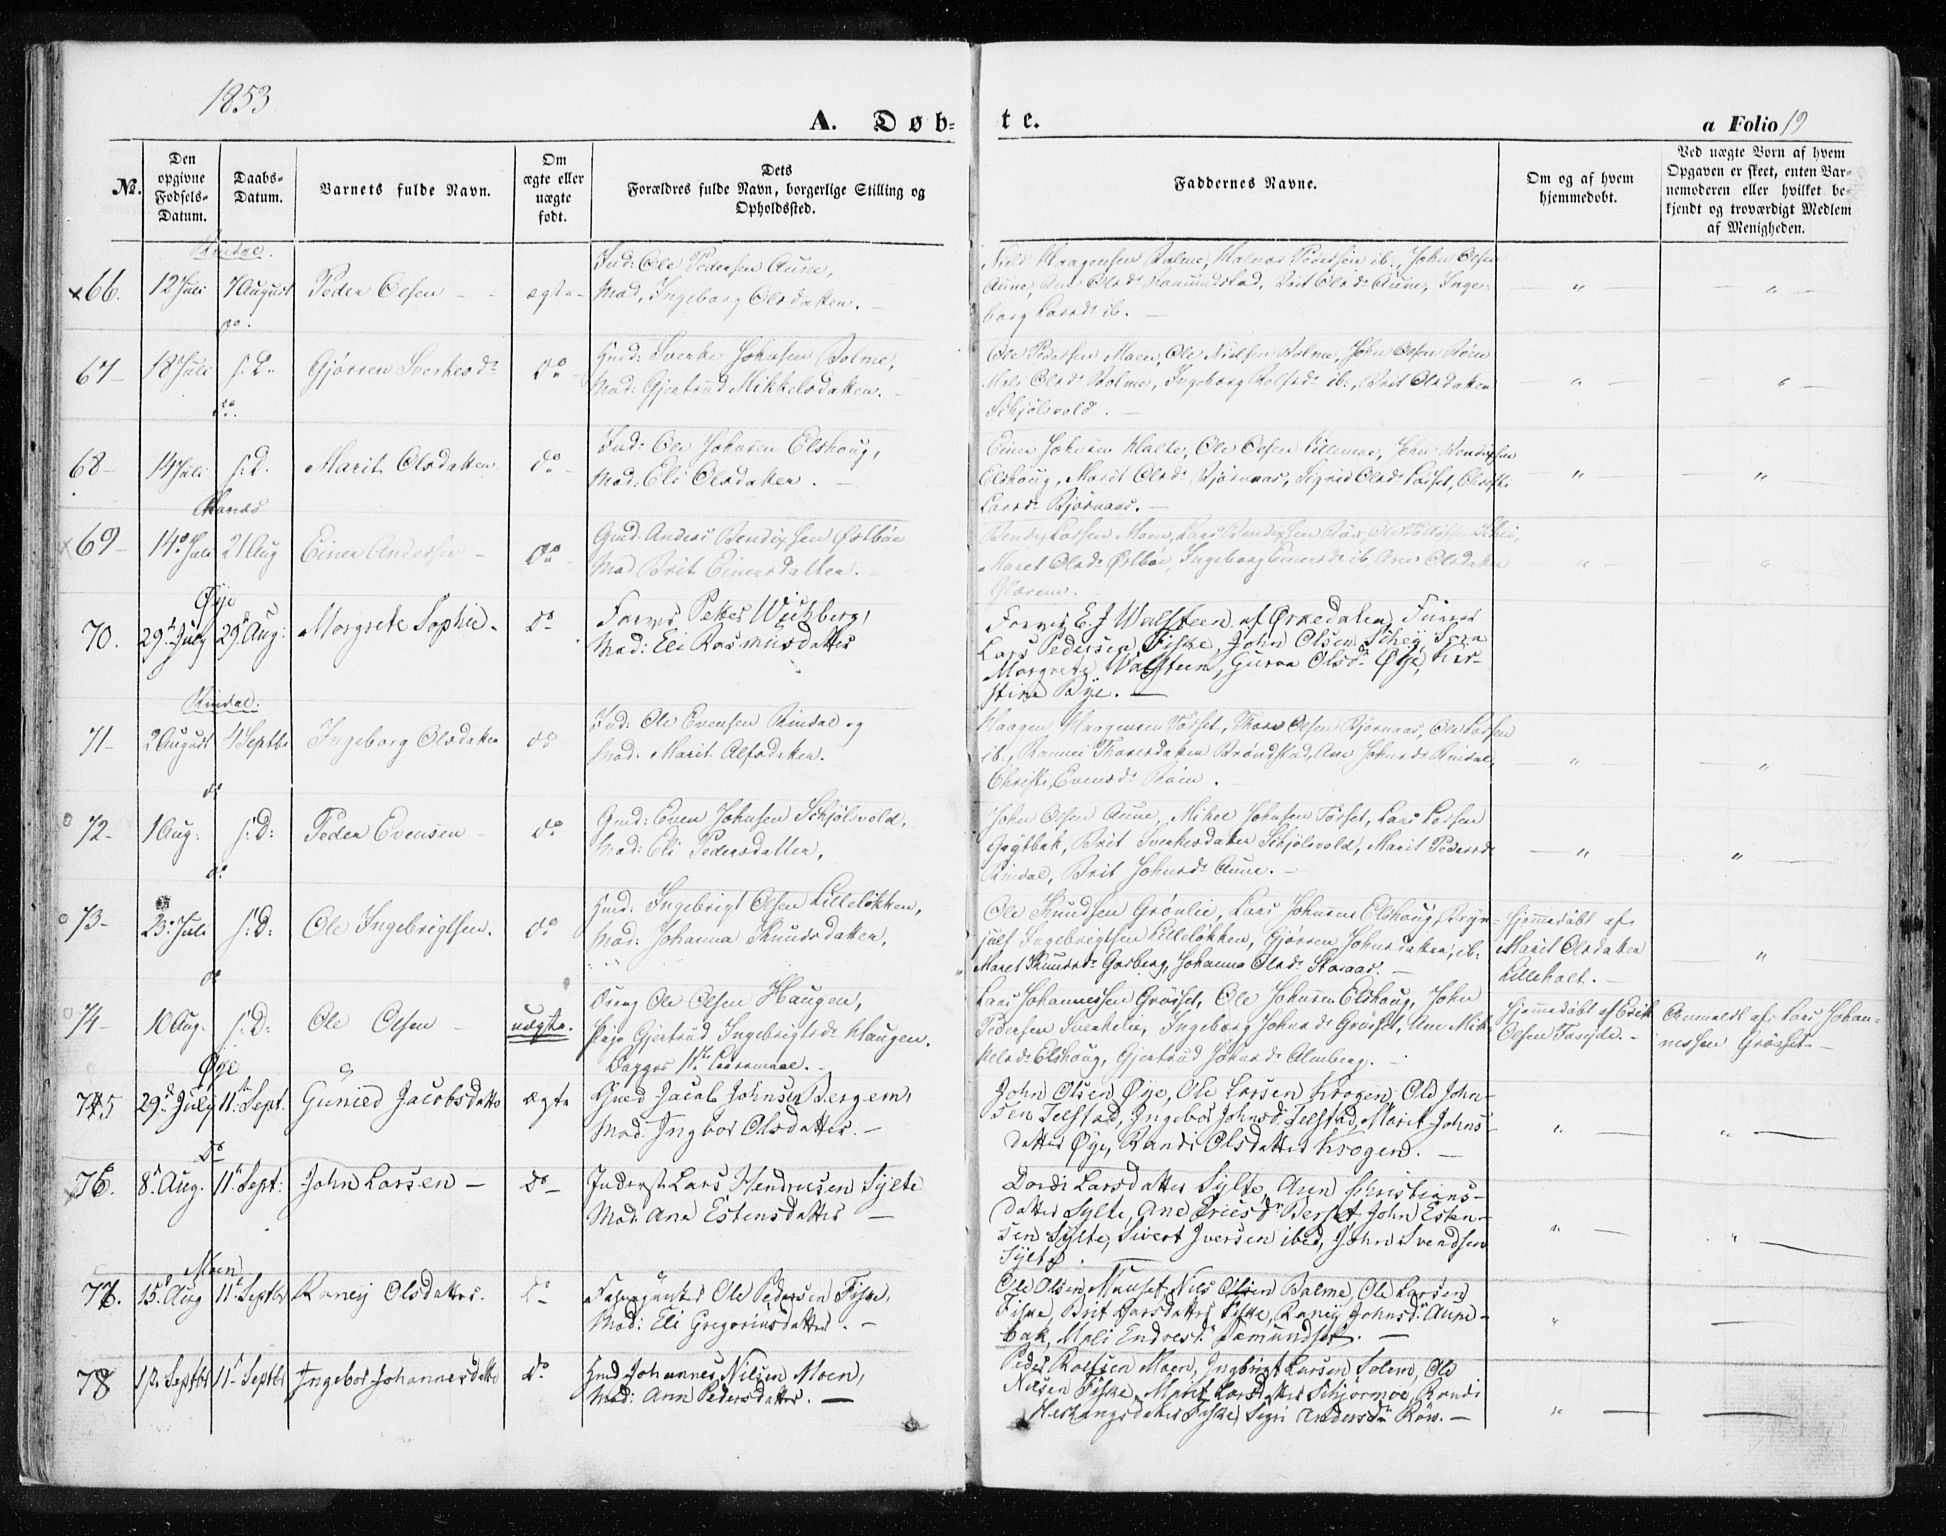 1853
A. Døb-
te.
a Folio 19
No.
Den opgivne Fødsels-Datum.
Daabs-Datum.
Barnets fulde Navn.
Om ægte eller uægte født.
Dets Forældres fulde Navn, borgerlige Stilling og Opholdssted.
Faddernes Navne.
Om og af hvem hjemmedøbt.
Ved uægte Børn af hvem Opgaven er skeet, enten Barnemoderen eller hvilket bekjendt og troværdigt Medlem af Menigheden.
Rindal.
66. 12 Juli 7 August Peder Olsen ægte
Ind: Ole Pedersen Aune,
Mod, Ingeborg Olsdatter.
Nils Haagensen Bolme, Halvor Pedersen ib., John Olsen
Aune, Ane Olsd. Romundstad, Brit Olsd. Aune, Inge-
borg Larsd. ib.
do.
67 18 Juli s. D. Gjørren Sverkesd. Do
Gmd: Sverke Johnsen Bolme,
Mod: Gjertrud Mikkelsdatter.
Ole Pedersen Moen, Ole Nielsen Bolme, John Olsen Røen
Mali Olsd. Bolme, Ingeborg Rolfsd. ib., Brit Olsdatter
Schjølsvold.
do.
68 14 Juli s. D. Marit Olsdatter do
Ind: Ole Johnsen Elshoug,
Mod: Eli Olsdatter.
Einer Johnsen Halte, Ole Olsen Lillemoe, John Bendixsen
Elshoug, Marit Olsd. Bjørnaas, Sigrid Olsd. Torset, Christi
Larsd. Bjørnaas.
Hanæs
69 14 Juli 21 Aug Einer Andersen do
Gmd: Anders Bendixsen Østbøe
Mod Brit Einersdatter.
Maret Olsd. Østbøe, Ingeborg Einersd. ib, Ane Olsdatter
Glærem.
Øye
70. 29d July 29d Aug: Margrete Sophie Do
Forvr Petter Wichberg,
Mod: Eli Rasmusdatter
Forvr E. J Walsteen af Ørkedalen, Furrer
Lars Pedersen Fiske, John Olsen Schey, Sara
Margrete Walsteen, Gurva Olsd. Øye, Kir-
stine Bye.
Rindal.
71 2 August 4 Septbr Ingeborg Olsdatter do
Ind: Ole Evensen Rindal og
Mod: Marit Alfsdatter.
Haagen Haagensen Torset, Thore Olsen Bjørnaas, Ole Larsen
ib., Ranei Thoresdatter Brøndstad, Ane Johnsd. Rindal,
Christi Evensd. Røen.
do
72 1 Aug: s. D: Peder Evensen do
Gmd: Even Johnsen Schjølsvold,
Mod: Eli Pedersdatter,
John Olsen Aune, Mikel Johnsen Torset, Lars Larsen
Gagtbak, Brit Sverkesdatter Schjølsvold, Marit Pedersd.
Rindal, Brit Johnsd. Aune.
do
73 23: Juli s. D: Ole Ingebrigtsen. do
Gmd: Ingebrigt Olsen Lilleløkken,
Mod: Johanna Knudsdatter,
Ole Knudsen Grønlie, Lars Johnsen Elshoug, Bryn-
julf Ingebrigtsen Lilleløkken, Gjørren Johnsdatter, ib.
Maret Knudsd. Garberg, Johanna Olsd. Storaas.
Hjemmedøbt af
Marit Olsdatter
Lilleholt.
do
74 10 Aug. s. D: Ole Olsen uægte.
Dreng Ole Olsen Haugen,
Pige Gjertrud Ingebrigtsd. Haugen.
Begges 1ste Leiermaal.
Lars Johannessen Grøsset, Ole Johnsen Elshoug, John
Pedersen Sverkelie, Ingeborg Johnsd. Grøsset, Ane Mik-
kelsd. Elshoug, Gjertrud Johnsd. Almberg.
Hjemmedøbt af Erik
Olsen
Anmeldt af Lars Johan-
nessen Grøsset
Øye
75 29d July 11te Sept. Gunied Jacobsdatter ægte
Gmd Jacob Johnsen Bergem,
Mod: Ingbor Olsdatter.
John Olsen Øye, Ole Larsen Krogen, Old John-
sen Telstad, Ingebor Johnsd. Telstad, Marit Johns-
datter Øye, Randi Olsdatter Krogen.
Do
76. 8d Aug. 11t Sept: John Larsen Do
Inderst Lars Hendricsen Sylte
Mod: Ane Estensdatter
Dordi Larsdatter Sylte, Aren Christians-
datter Sylte, Ane Ericsd. Berset, John Esten-
sen Sylte, Sivert Iversen ibed, John Svendsen
Sylte.
Moen
77. 15d Aug 11t Septbr Raney Olsdatter. Do
Ole Pedersen Fiske,
Mod: Eli Gregoriusdatter.
Ole Olsen Mauset, Nils Olsen Balme, Ole Larsen
Fiske, Brit Larsdatter Fiske, Raney Johnsd. Aune-
bak, Mali Endresd.
78 1st Septbr 11t Septbr Ingebor Johannesdatter Do
Gmd Johannes Nilsen Moen,
Mod: Ann Pedersdatter.
Peder Rolfsen Moen, Ingbrigt Larsen Solem, Old
Nilsen Fiske, Marit Larsdatter Schjørmoe, Randi
Fiske, Sigri Andersd. Røv.